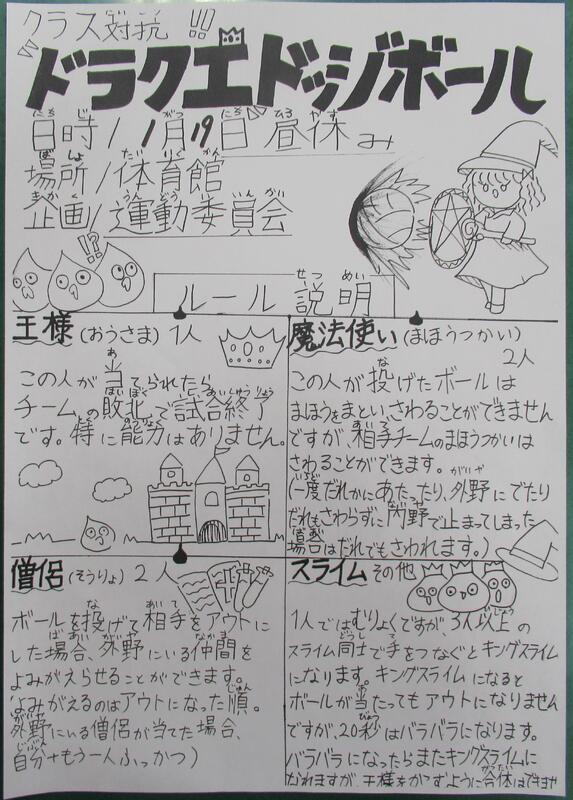 クラス対抗!!
ドラクエドッジボール
日時/1月19日昼休み
場所/体育館
企画/運動委員会
!?
ルール説明
王様(おうさま)1人
この人が当てられたら
チームの敗北で試合終了
です。特に能力はありません。
魔法使い(まほうつかい)
2人
この人が投げたボールは
まほうをまとい、さわることができません
ですが、相手チームのまほうつかいは
さわることができます。
(一度だれかにあたったり、外野にでたり
だれもさわらずに内野で止まってしまった
場合はだれでもさわれます。)
僧侶(そうりょ)2人
ボールを投げて相手をアウトに
した場合、外野にいる仲間を
よみがえらせることができます。
よみがえるのはアウトになった順。
外野にいる僧侶が当てた場合、
自分+もう一人ふっかつ)
スライム その他
1人ではむりょくですが、3人以上の
スライム同士で手をつなぐとキングスライム
になります。キングスライムになると
ボールが当たってもアウトになりません
ですが、20秒はバラバラになります。
バラバラになったらまたキングスライムに
なれますが、王様をかこすように合体はできませ